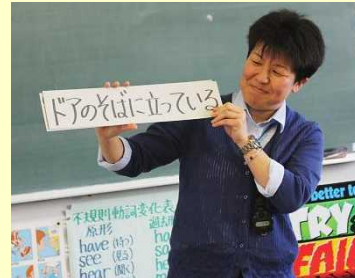 ドアのそばに立っている
不規則動詞変化表
原形
have (持つ)
see (見る)
hear (聞く)
better to
TRY
FAIL